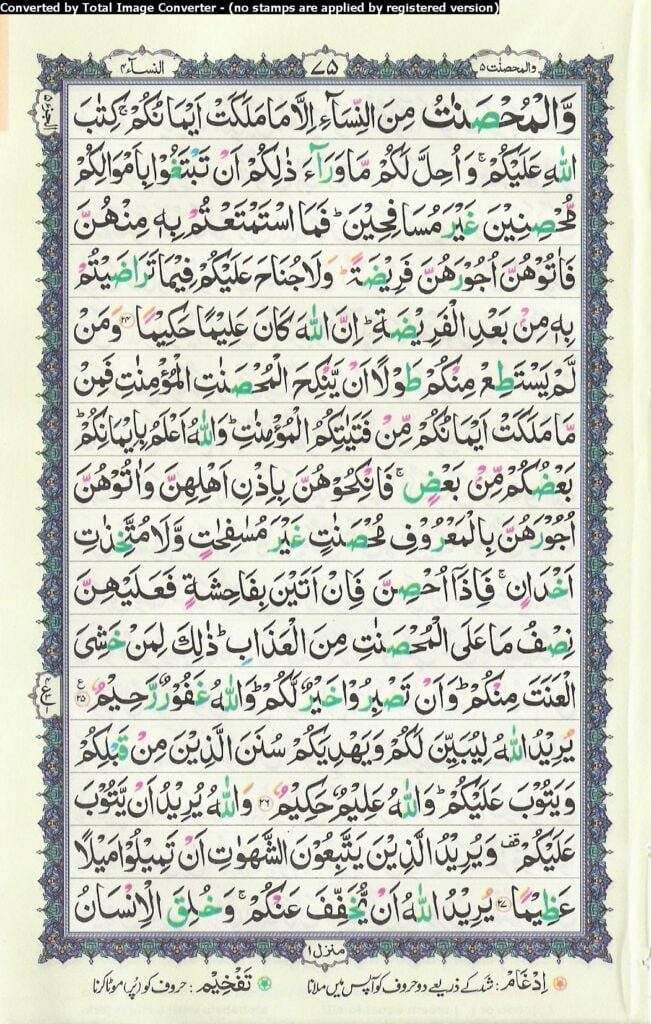 Converted by Total Image Converter - (no stamps are applied by registered version)
والمحصنٰت ۵
۷۵
النسآء ۴
وَّالْمُحْصَنٰتُ مِنَ النِّسَآءِ اِلَّا مَا مَلَكَتْ اَيْمَانُكُمْ ۚ كِتٰبَ
اللّٰهِ عَلَيْكُمْ ۚ وَاُحِلَّ لَكُمْ مَّا وَرَآءَ ذٰلِكُمْ اَنْ تَبْتَغُوْا بِاَمْوَالِكُمْ
مُّحْصِنِيْنَ غَيْرَ مُسَافِحِيْنَ ؕ فَمَا اسْتَمْتَعْتُمْ بِهٖ مِنْهُنَّ
فَاٰتُوْهُنَّ اُجُوْرَهُنَّ فَرِيْضَةً ؕ وَلَا جُنَاحَ عَلَيْكُمْ فِيْمَا تَرَاضَيْتُمْ
بِهٖ مِنْۢ بَعْدِ الْفَرِيْضَةِ ؕ اِنَّ اللّٰهَ كَانَ عَلِيْمًا حَكِيْمًا ۝۲۴ وَمَنْ
لَّمْ يَسْتَطِعْ مِنْكُمْ طَوْلًا اَنْ يَّنْكِحَ الْمُحْصَنٰتِ الْمُؤْمِنٰتِ فَمِنْ
مَّا مَلَكَتْ اَيْمَانُكُمْ مِّنْ فَتَيٰتِكُمُ الْمُؤْمِنٰتِ ؕ وَاللّٰهُ اَعْلَمُ بِاِيْمَانِكُمْ ؕ
بَعْضُكُمْ مِّنْۢ بَعْضٍ ۚ فَانْكِحُوْهُنَّ بِاِذْنِ اَهْلِهِنَّ وَاٰتُوْهُنَّ
اُجُوْرَهُنَّ بِالْمَعْرُوْفِ مُحْصَنٰتٍ غَيْرَ مُسٰفِحٰتٍ وَّلَا مُتَّخِذٰتِ
اَخْدَانٍ ۚ فَاِذَاۤ اُحْصِنَّ فَاِنْ اَتَيْنَ بِفَاحِشَةٍ فَعَلَيْهِنَّ
نِصْفُ مَا عَلَى الْمُحْصَنٰتِ مِنَ الْعَذَابِ ؕ ذٰلِكَ لِمَنْ خَشِيَ
الْعَنَتَ مِنْكُمْ ؕ وَاَنْ تَصْبِرُوْا خَيْرٌ لَّكُمْ ؕ وَاللّٰهُ غَفُوْرٌ رَّحِيْمٌ ۝۲۵
يُرِيْدُ اللّٰهُ لِيُبَيِّنَ لَكُمْ وَيَهْدِيَكُمْ سُنَنَ الَّذِيْنَ مِنْ قَبْلِكُمْ
وَيَتُوْبَ عَلَيْكُمْ ؕ وَاللّٰهُ عَلِيْمٌ حَكِيْمٌ ۝۲۶ وَاللّٰهُ يُرِيْدُ اَنْ يَّتُوْبَ
عَلَيْكُمْ ۟ وَيُرِيْدُ الَّذِيْنَ يَتَّبِعُوْنَ الشَّهَوٰتِ اَنْ تَمِيْلُوْا مَيْلًا
عَظِيْمًا ۝۲۷ يُرِيْدُ اللّٰهُ اَنْ يُّخَفِّفَ عَنْكُمْ ۚ وَخُلِقَ الْاِنْسَانُ
منزل ۱
اِدْغَام : شد کے ذریعے دو حروف کو آپس میں ملانا
تَفْخِیْم : حروف کو (پُر) موٹا کرنا